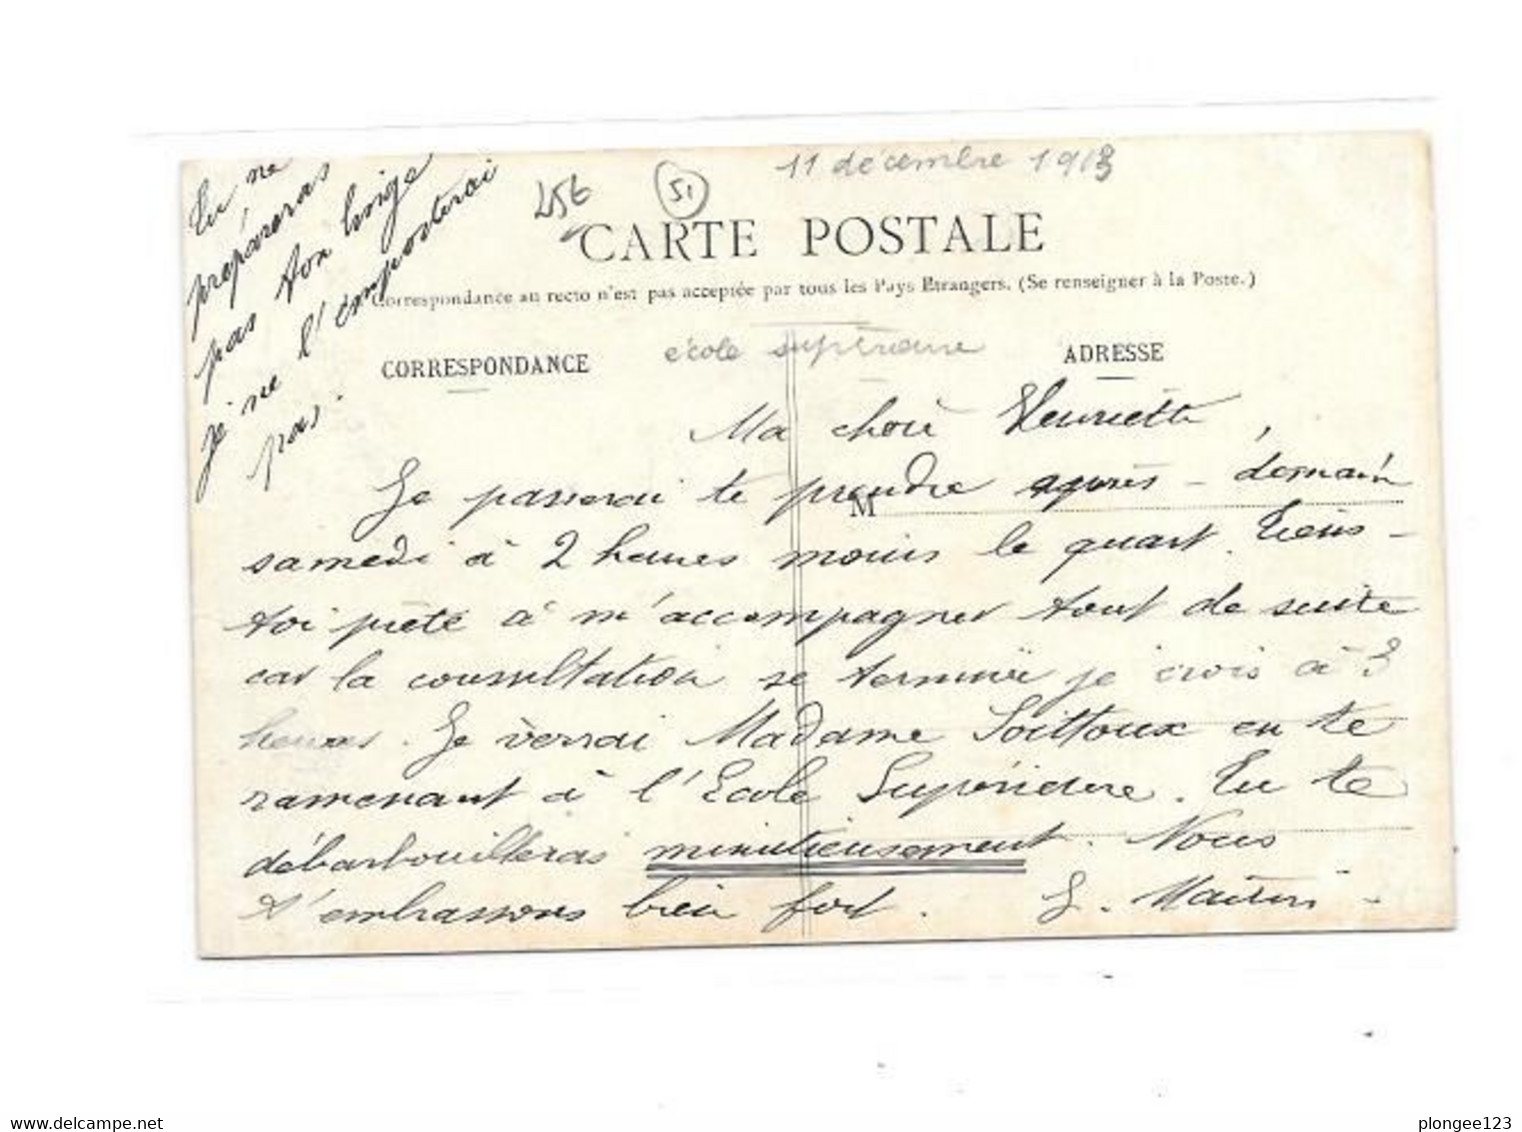 11 décembre 1913
456
51
Tu ne
prépareras
pas ton linge
je ne l'emporterai
pas.
CARTE POSTALE
Correspondance au recto n'est pas acceptée par tous les Pays Etrangers. (Se renseigner à la Poste.)
CORRESPONDANCE
école supérieure
ADRESSE
Ma chère Henriette,
Je passerai te prendre après-demain
M
samedi à 2 heures moins le quart. Tiens-
toi prête à m'accompagner tout de suite
car la consultation se termine je crois à 3
heures. Je verrai Madame Soittoux en te
ramenant à l'Ecole Supérieure. Tu te
débarbouilleras minutieusement. Nous
t'embrassons bien fort. J. Martin
www.delcampe.net
plongee123